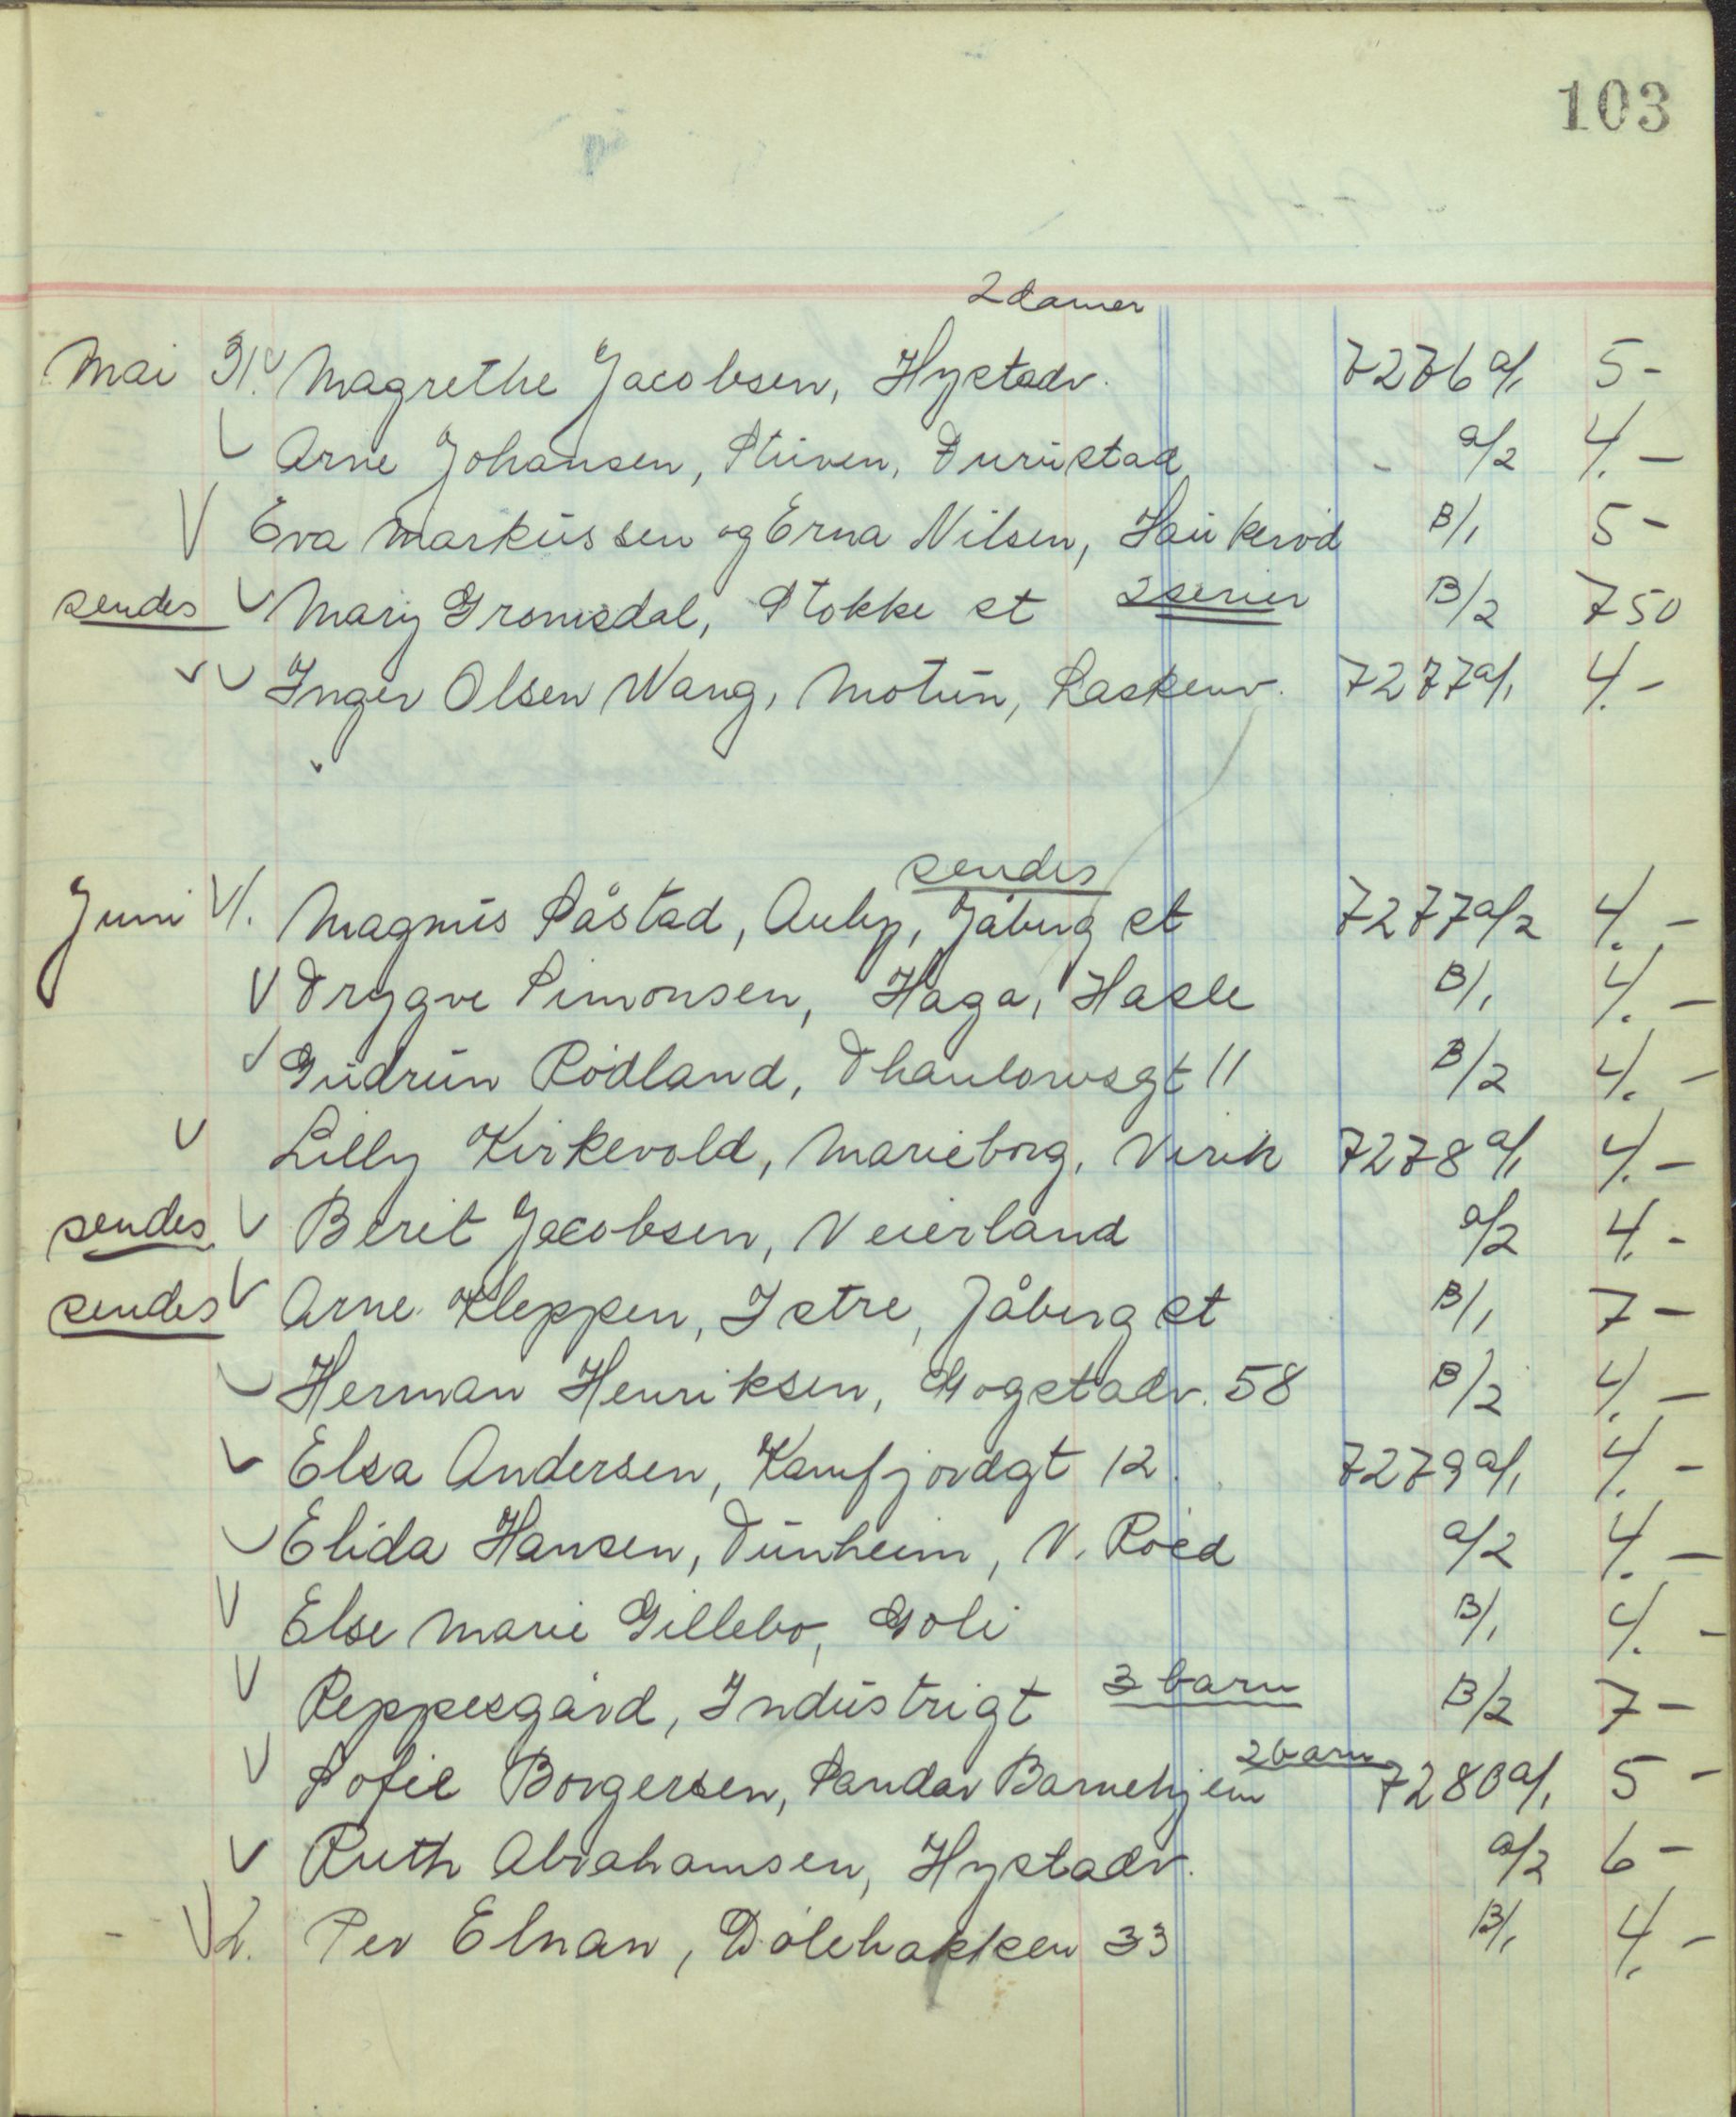 103
2 damer
Mai 31. Magrethe Jacobsen, Hystadv. 7276 a/1 5-
Arne Johansen, Stuven, Furustad - a/2 4.-
Eva Markussen og Erna Nilsen, Haukerød B/1 5-
sendes Mary Gromsdal, Stokke st 2 serier B/2 750
Inger Olsen Wang, Motun, Raskenv. 7277 a/1 4.-
sendes
Juni 1. Magnus Såstad, Auby, Jåberg st 7277 a/2 4.-
Trygve Simonsen, Haga, Hasle B/1 4.-
Gudrun Rødland, Thaulowsgt 11 B/2 4.-
Lilly Kirkevold, Marieborg, Virik 7278 a/1 4.-
sendes Berit Jacobsen, Veierland a/2 4.-
sendes Arne Kleppen, Istre, Jåberg st B/1 7-
Herman Henriksen, Gogstadv. 58 B/2 4.-
Elsa Andersen, Kamfjordgt 12. 7279 a/1 4.-
Elida Hansen, Tunheim, N. Röed a/2 4.-
Else Marie Gillebo, Goli B/1 4.-
Reppesgård, Industrigt 3 barn B/2 7-
2 barn
Sofie Borgersen, Sandar Barnehjem 7280 a/1 5-
Ruth Abrahamsen, Hystadv. a/2 6-
2. Per Elnan, Dølebakken 33 B/1 4.-